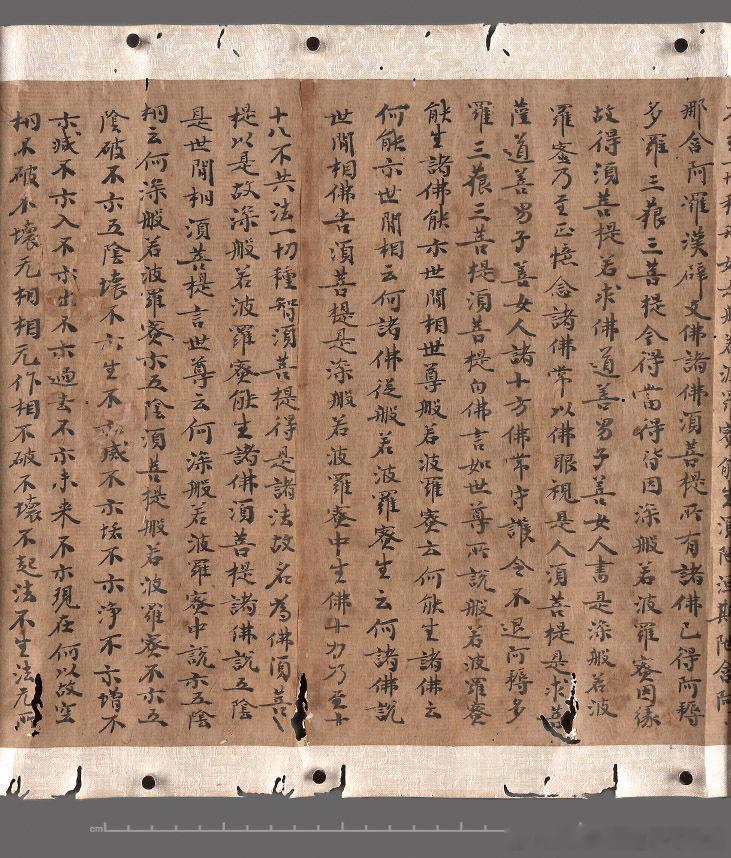 那含阿羅漢辟支佛諸佛須菩提所有諸佛已得阿耨
多羅三藐三菩提今得當得皆因深般若波羅蜜因緣
故得須菩提若求佛道善男子善女人書是深般若波
羅蜜乃至正憶念諸佛常以佛眼視是人須菩提是求菩
薩道善男子善女人諸十方佛常守護令不退阿耨多
羅三藐三菩提須菩提白佛言如世尊所說般若波羅蜜
能生諸佛能示世間相世尊般若波羅蜜云何能生諸佛云
何能示世間相云何諸佛從般若波羅蜜生云何諸佛說
世間相佛告須菩提是深般若波羅蜜中生佛十力乃至十
十八不共法一切種智須菩提得是諸法故名為佛須菩
提以是故深般若波羅蜜能生諸佛須菩提諸佛說五陰
是世間相須菩提言世尊云何深般若波羅蜜中說示五陰
相云何深般若波羅蜜示五陰須菩提般若波羅蜜不示五
陰破不示五陰壞不示生不示滅不示垢不示淨不示增不
示減不示入不示出不示過去不示未来不示現在何以故空
相不破不壞无相相无作相不破不壞不起法不生法无所
cm